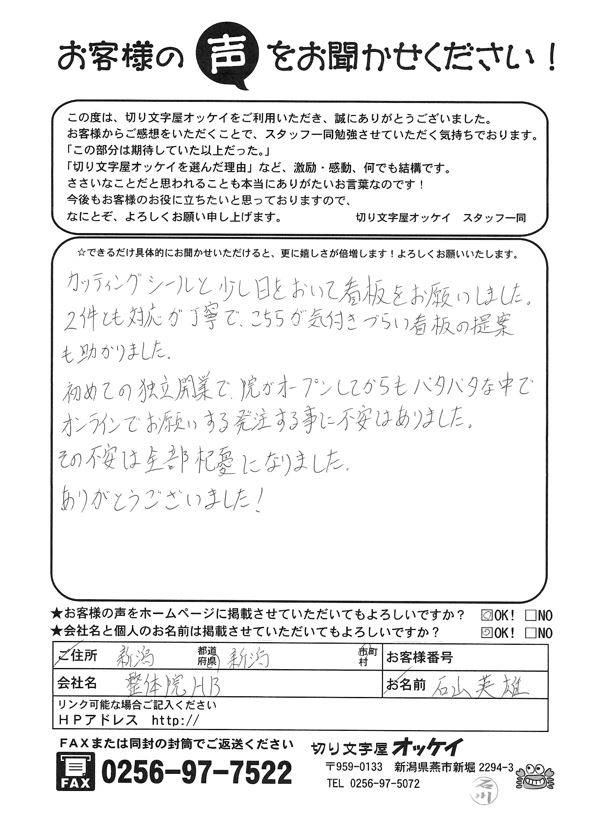 お客様の声をお聞かせください！
この度は、切り文字屋オッケイをご利用いただき、誠にありがとうございました。
お客様からご感想をいただくことで、スタッフ一同勉強させていただく気持ちでおります。
「この部分は期待していた以上だった。」
「切り文字屋オッケイを選んだ理由」など、激励・感動、何でも結構です。
ささいなことだと思われることも本当にありがたいお言葉なのです！
今後もお客様のお役に立ちたいと思っておりますので、
なにとぞ、よろしくお願い申し上げます。　切り文字屋オッケイ　スタッフ一同
☆できるだけ具体的にお聞かせいただけると、更に嬉しさが倍増します！よろしくお願いいたします。
カッティングシールと少し日をおいて看板をお願いしました。
2件とも対応が丁寧で、こちらが気付きづらい看板の提案
も助かりました。
初めての独立開業で、院がオープンしてからもバタバタな中で
オンラインでお願いする発注する事に不安はありました。
その不安は全部杞憂になりました。
ありがとうございました！
★お客様の声をホームページに掲載させていただいてもよろしいですか？　☑OK！　□NO
★会社名と個人のお名前は掲載させていただいてもよろしいですか？　☑OK！　□NO
ご住所　新潟　都道府県　新潟　市町村　お客様番号
会社名　整体院HB　お名前　石山英雄
リンク可能な場合ご記入ください
HPアドレス　http://
FAXまたは同封の封筒でご返送ください
FAX　0256-97-7522
切り文字屋オッケイ
〒959-0133　新潟県燕市新堀 2294-3
TEL 0256-97-5072